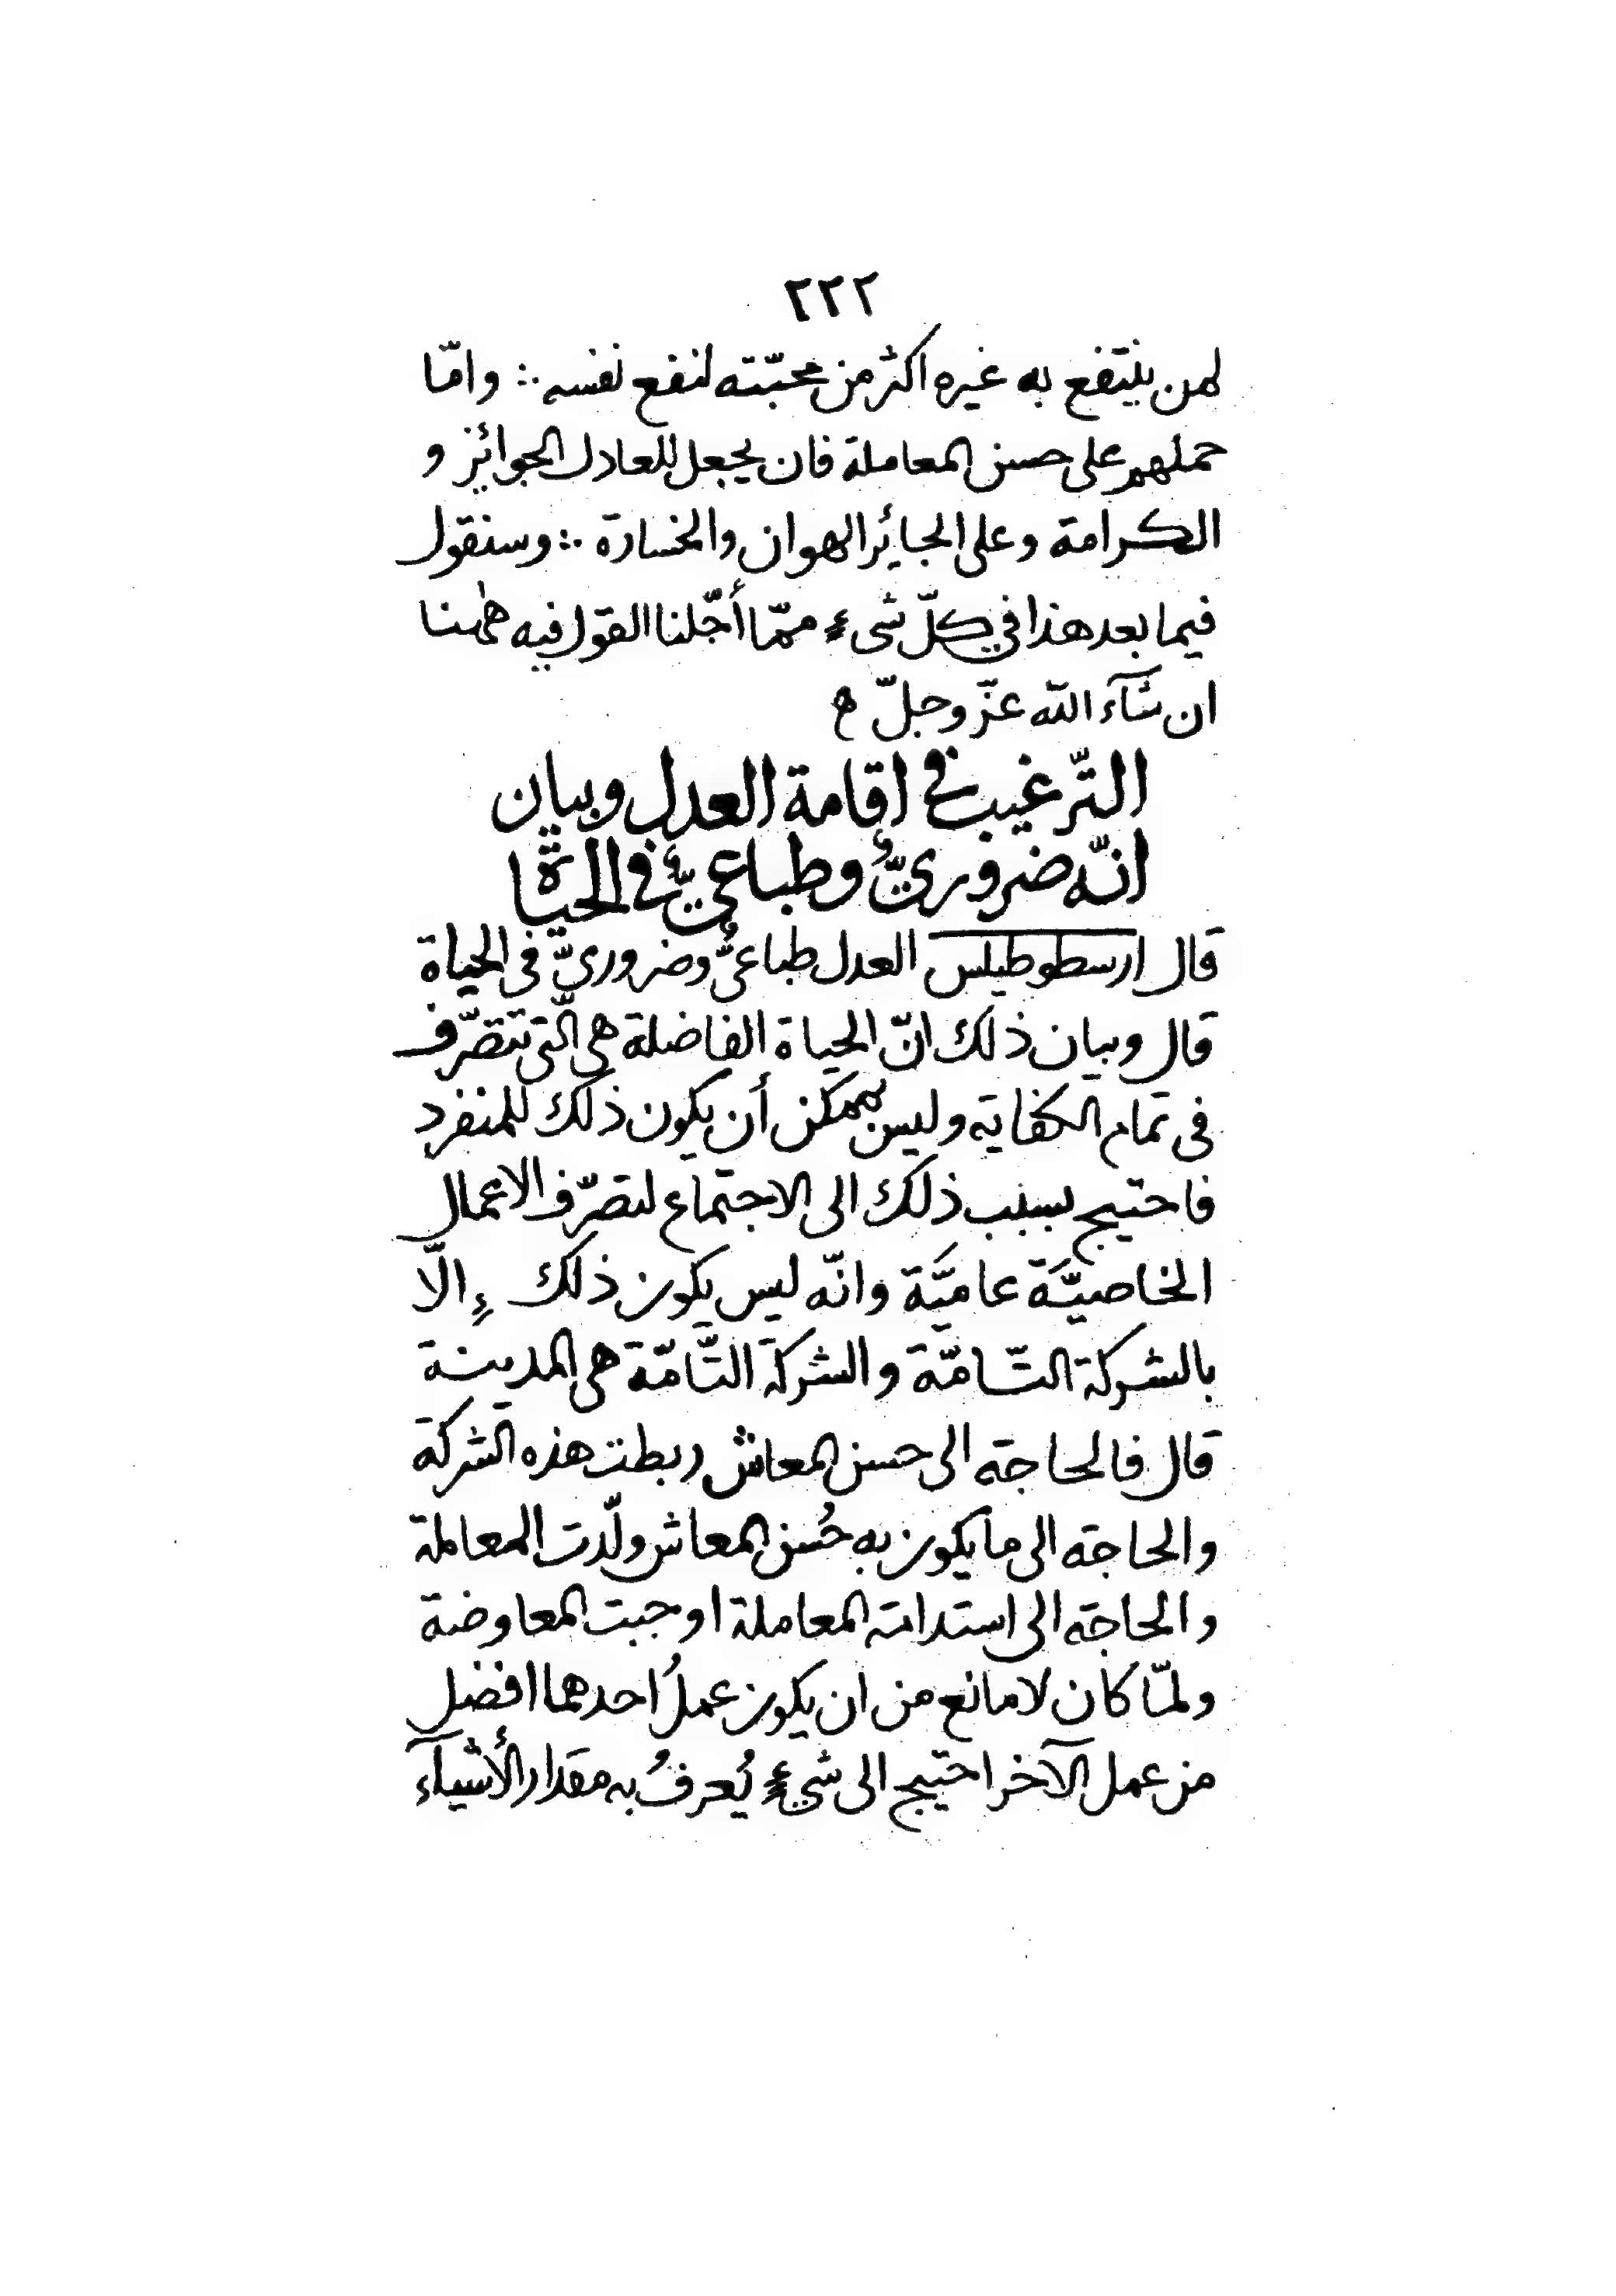 ٢٢٢
لمن ينتفع به غيره اكثر من محبّته لنفع نفسه ∴ وامّا
حملهم على حسن المعاملة فان يجعل للعادل الجوائز و
الكرامة وعلى الجائر الهوان والخسارة ∴ وسنقول
فيما بعد هذا في كلّ شىءٍ ممّا أجّلنا القول فيه هٰهنا
ان شآء اللّه عزّ وجلّ ه
التّرغيب في اقامة العدل وبيان
انّه ضروريٌّ وطباعيٌّ في الحياة
قال ارسطوطيلس العدل طباعىٌّ وضروريّ فى الحياة
قال وبيان ذلك انّ الحياة الفاضلة هى الّتى تتصرّف
فى تمام الكفاية وليس يمكن أن يكون ذلك للمنفرد
فاحتيج بسبب ذلك الى الاجتماع لتصرّف الاعمال
الخاصيَّة عاميَّة وانّه ليس يكون ذلك إِلّا
بالشركة التّامّة والشركة التّامّة هى المدينة
قال فالحاجة الى حسن المعاش ربطت هذه الشركة
والحاجة الى ما يكون به حُسن المعاش ولّدت المعاملة
والحاجة الى استدامة المعاملة اوجبت المعاوضة
ولمّا كان لا مانع من ان يكون عملُ احدهما افضل
من عمل الآخر احتيج الى شىءٍ يُعرفُ به مقدار الأشيآء